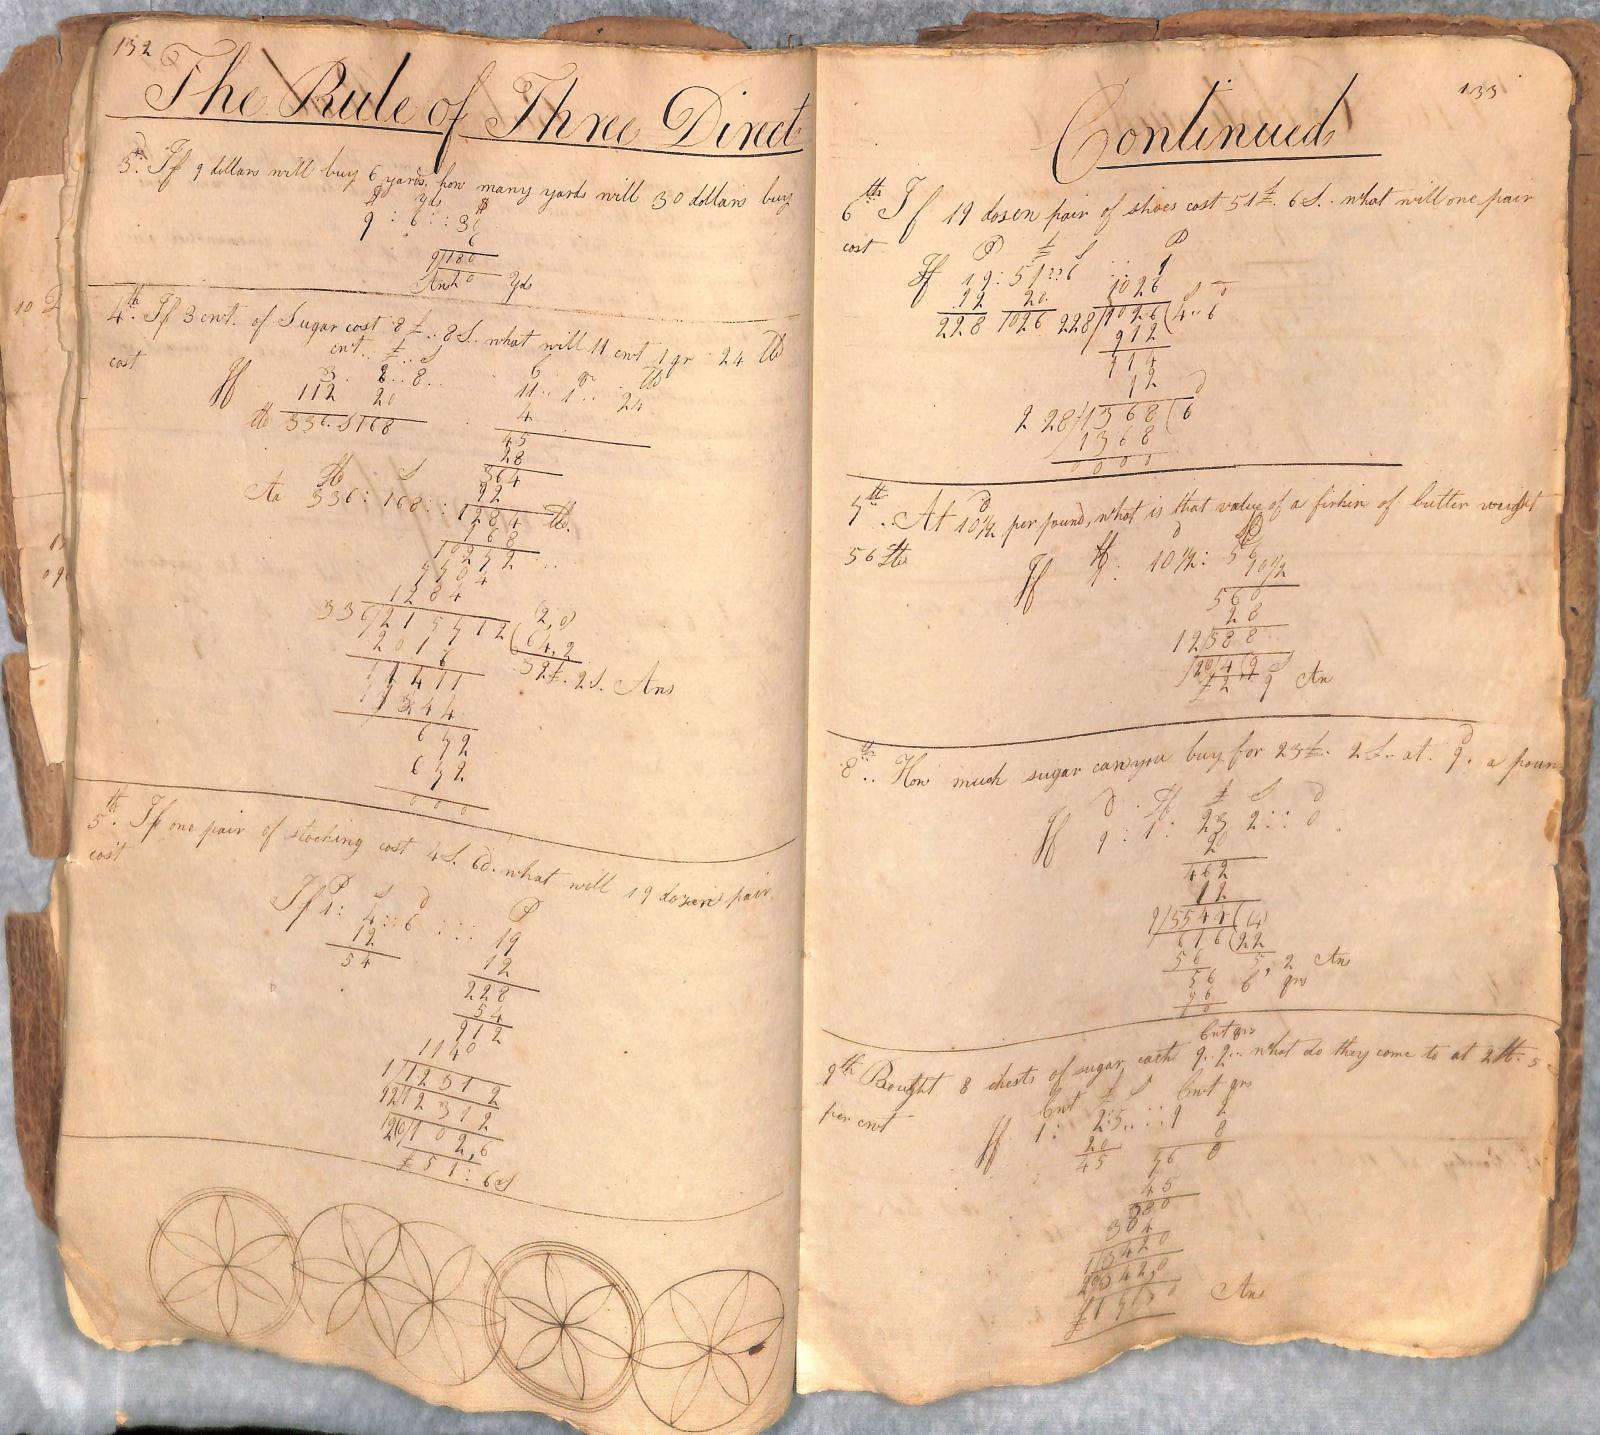 132
The Rule of Three Direct
3d. If 9 dollars will buy 6 yards, how many yards will 30 dollars buy
$ yds $
9 : 6 :: 30
6
9/180
Ans 20 Yds
4th. If 3 cwt. of Sugar cost 8£ .. 8S. what will 11 cwt 1 qr 24 lb
cost
cwt .. £ .. S
If 3. 8 .. 8 .. 11 .. 1 .. 24
112 20 4
lb 336. S168 45
28
364
lb S 92
As 336 : 168 :: 1284 lb.
168
10272
7704
1284
336/215712 (2,0
2016 (64,2
32£. 2S. Ans
1411
1344
672
672
000
5th. If one pair of stocking cost 4S. 6d. what will 19 dozen pair
cost
P S d P
If 1 : 4 :: 6 :::: 19
12 12
54 228
54
912
1140
1/12312
12/12312
20/102,6
£51 : 6S
Continued
133
6th If 19 dosen pair of shoes cost 51£. 6S. what will one pair
cost
P £ S P
If 19 : 51 :: 6 .. 1
12 20. 1026
228 1026 228/1026(4..6
912
114
12
228/1368(6
1368
0000
7th .. At 10 1/2 d per pound, what is that value of a firkin of butter weight
56 lbs
If 1 : 10 1/2 : 56
10 1/2
560
28
12/588
20/4(9 S
£2 9 An
8th .. How much sugar can you buy for 23£. 2S. at. 9. a poun
d lb £ S d
If 9 : 1 : 23 2 :: 0
20
462
12
9/5544(4
616(22
56 5, 2 An
56 6 qrs
56
0
9th Bought 8 chests of sugar each 9..2.. what do they come to at 2lb. 5
Cwt qrs
per cwt
Cwt £ S Cwt qrs
If 1 : 2:5 .. :: 9 2
20 8
45 76 0
45
380
304
1/3420
20/342,0
£171 0 0 An